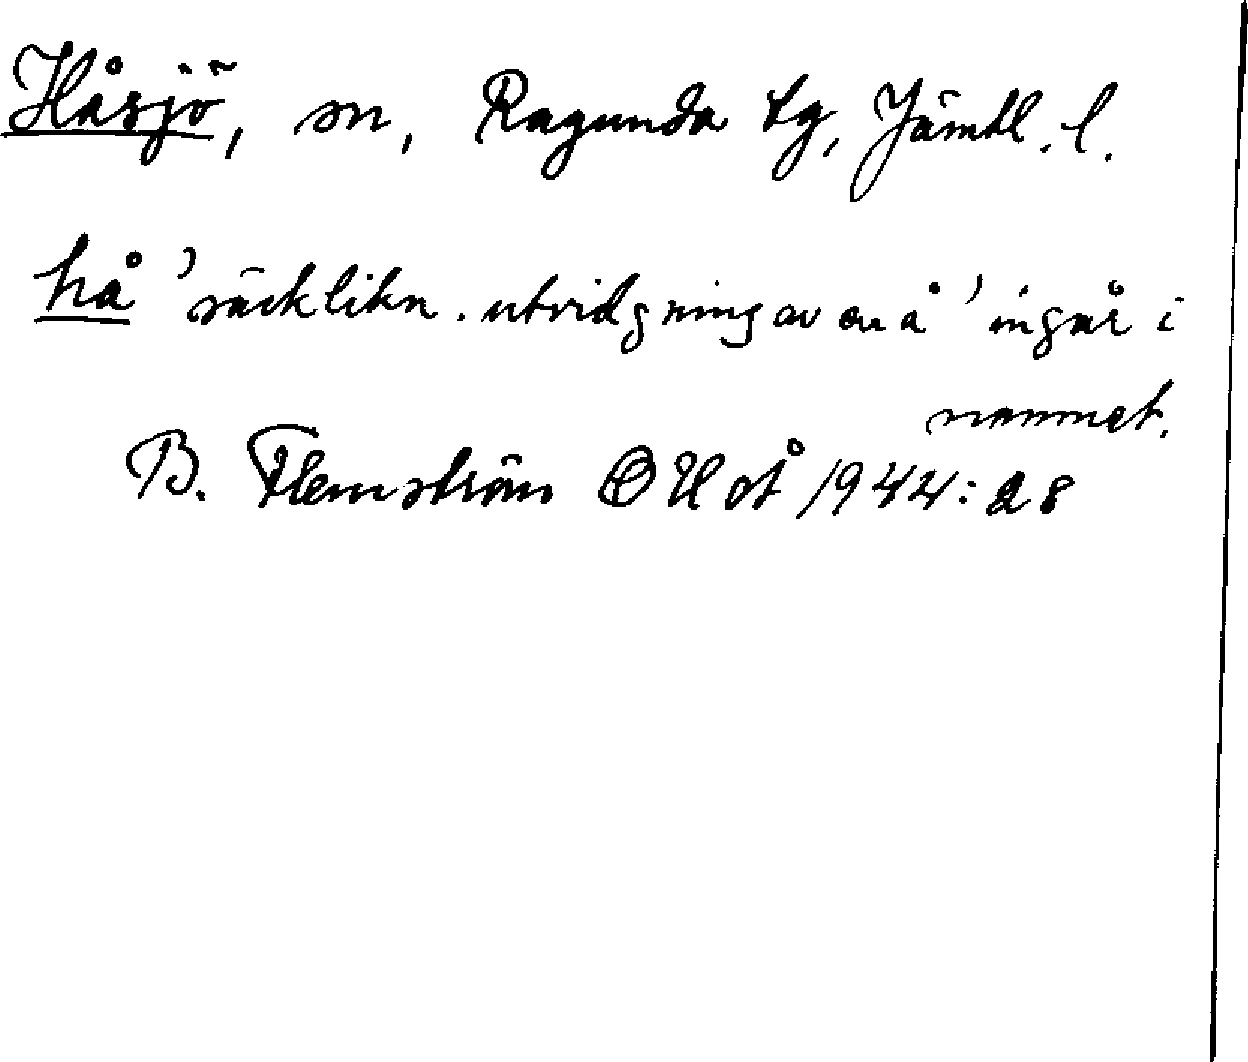 Håsjö, sn, Ragunda tg, Jämtl. l.
hå 'säcklikn. utvidgning av en å' ingår i
namnet.
B. Flemström OUoÅ 1944: 28